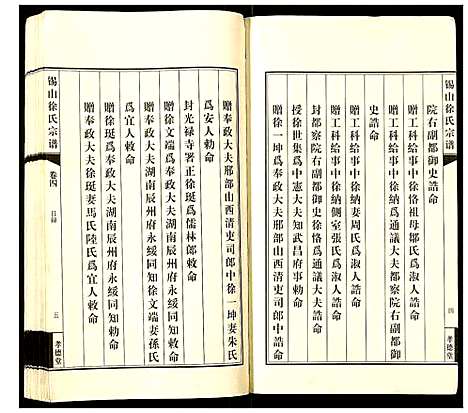 锡山徐氏宗谱
四
孝德堂
院右副都御史誥命
贈工科給事中徐恪祖母鄒氏爲淑人誥命
贈工科給事中徐納妻周氏爲淑人誥命
贈工科給事中徐納側室張氏爲淑人誥命
贈工科給事中徐恪爲通議大夫都察院右副都御
史誥命
封都察院右副都御史徐恪爲通議大夫誥命
授徐世集爲中憲大夫知武昌府事勅命
贈徐一坤爲奉政大夫邢部山西清吏司郎中誥命
贈奉政大夫邢部山西清吏司郎中徐一坤妻朱氏
爲安人勅命
封光禄寺署正徐珽爲儒林郎敕命
贈徐文端爲奉政大夫湖南辰州府永綏同知敕命
贈奉政大夫湖南辰州府永綏同知徐文端妻孫氏
爲宜人敕命
贈徐珽爲奉政大夫湖南辰州府永綏同知勅命
贈奉政大夫徐珽妻馬氏陸氏爲宜人敕命
锡山徐氏宗谱
卷四
目録
五
孝德堂